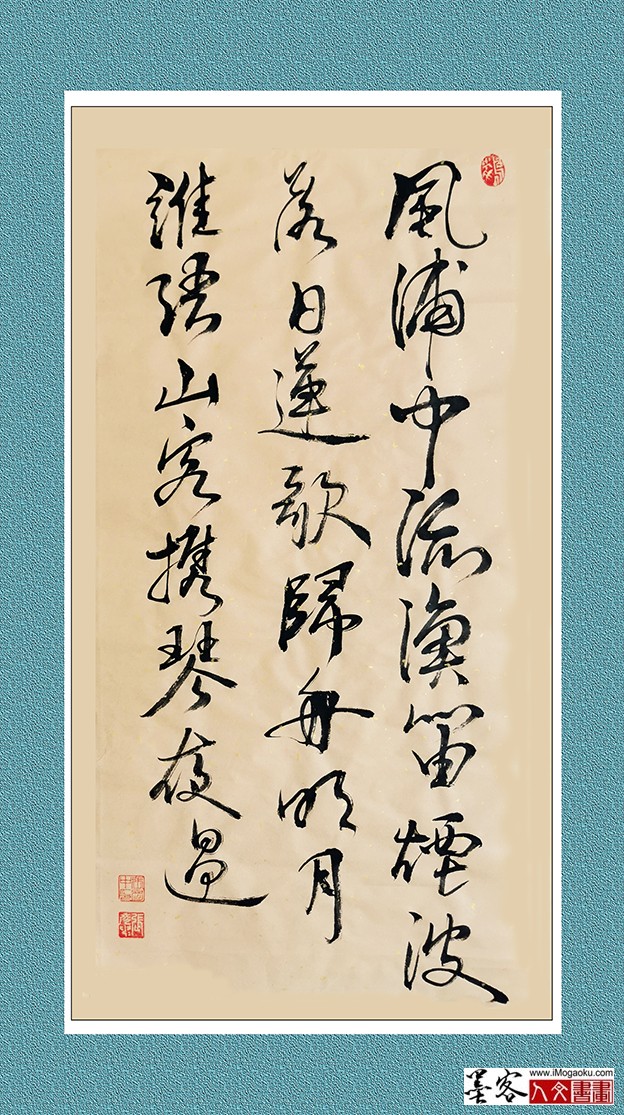 風浦中流漁笛煙波
落日蓮歌歸舟明月
誰語山客攜琴夜過
www.iMogaoku.com
墨客
人文書畫